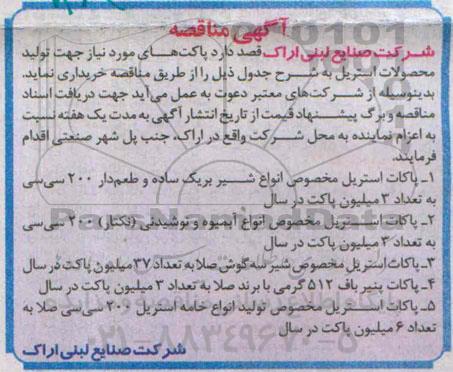 آگهی مناقصه
شرکت صنایع لبنی اراک قصد دارد پاکت‌های مورد نیاز جهت تولید
محصولات استریل به شرح جدول ذیل را از طریق مناقصه خریداری نماید.
بدینوسیله از شرکت‌های معتبر دعوت به عمل می‌آید جهت دریافت اسناد
مناقصه و برگ پیشنهاد قیمت از تاریخ انتشار آگهی به مدت یک هفته نسبت
به اعزام نماینده به محل شرکت واقع در اراک، جنب پل شهر صنعتی اقدام
فرمایند.
۱ـ پاکات استریل مخصوص انواع شیر بریک ساده و طعم‌دار ۲۰۰ سی‌سی
به تعداد ۳ میلیون پاکت در سال
۲ـ پاکات استریل مخصوص انواع آبمیوه و نوشیدنی (نکتار) ۲۰۰ سی‌سی
به تعداد ۳ میلیون پاکت در سال
۳ـ پاکات استریل مخصوص شیر سه‌گوش صلا به تعداد ۳۷ میلیون پاکت در سال
۴ـ پاکات پنیر باف ۵۱۲ گرمی با برند صلا به تعداد ۳ میلیون پاکت در سال
۵ـ پاکات استریل مخصوص تولید انواع خامه استریل ۲۰۰ سی‌سی صلا به
تعداد ۶ میلیون پاکت در سال
شرکت صنایع لبنی اراک
ParsNamadData
۰۲۱-۸۸۳۴۹۶۷۰-۵